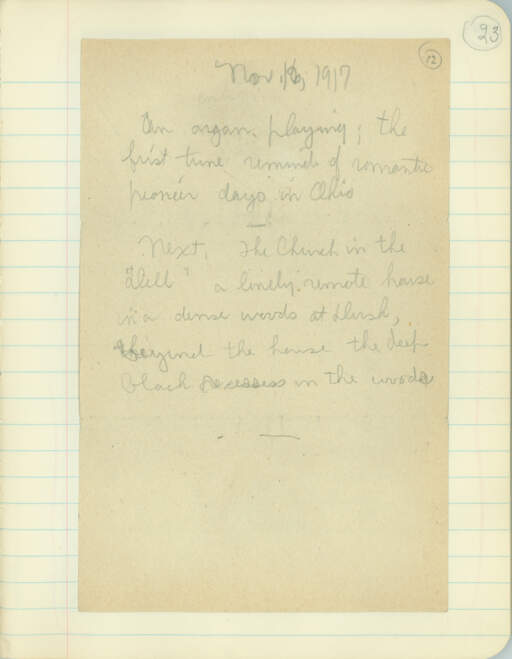 23
12
Nov. 16, 1917
An organ playing; the
first tune reminds of romantic
pioneer days in Ohio
—
Next, The Church in the
"Dell" a lonely remote house
in a dense woods at dusk,
beyond the house the deep
black recesses in the woods
—